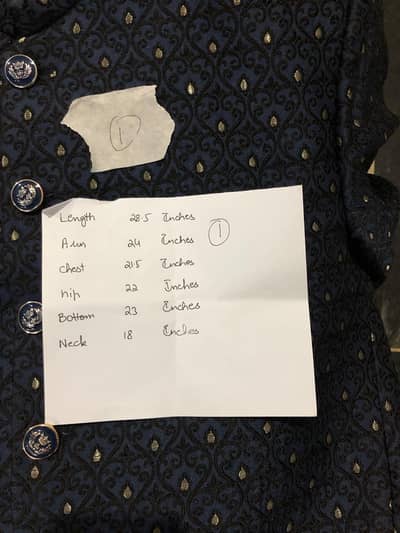 1
Length 28.5 Inches
Arm 24 Inches
1
Chest 21.5 Inches
hip 22 Inches
Bottom 23 Inches
Neck 18 Inches